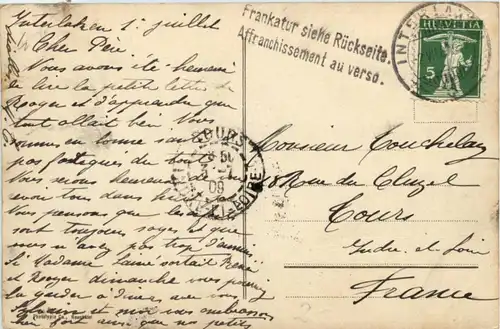 Interlaken 1er juillet
Cher Père
Nous avons été heureux
de lire la petite lettre de
Roger et d'apprendre que
tout allait bien. Nous
sommes en bonne santé
pas fatigués du tout
Nous serons heureux de
avoir tous dans
Nous pensons que les
sont toujours sages et que
vous n'avez pas trop d'ennuis.
Si Madame sortait René
et Roger dimanche vous pouvez
la garder à dîner avec vous
et moi vous embrassons
bien fort ainsi que nos petits
Frankatur siehe Rückseite.
Affranchissement au verso.
HELVETIA
5
INTERLAKEN
TOURS
09
Monsieur Touchelay
18 Rue du Cluzel
Tours
Indre et Loire
France